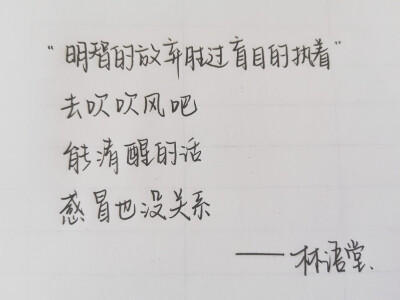 “明智的放弃胜过盲目的执着”
去吹吹风吧
能清醒的话
感冒也没关系
——林语堂.